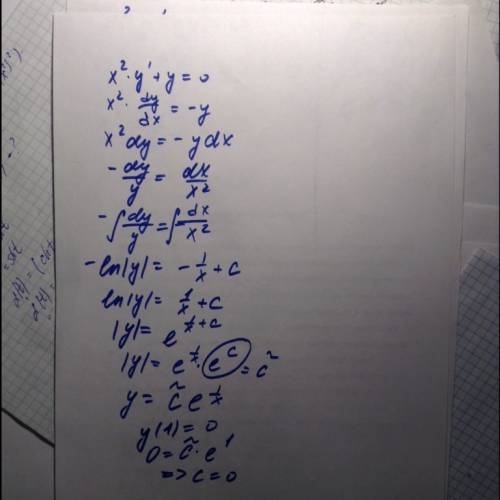 x² · y' + y = 0
x² · dy/dx = -y
x² dy = - y dx
- dy/y = dx/x²
- ∫ dy/y = ∫ dx/x²
- ln|y| = - 1/x + c
ln|y| = 1/x + c
|y| = e^(1/x + c)
|y| = e^(1/x) · e^c = c̃
y = c̃ e^(1/x)
y(1) = 0
0 = c̃ · e^1
=> c = 0